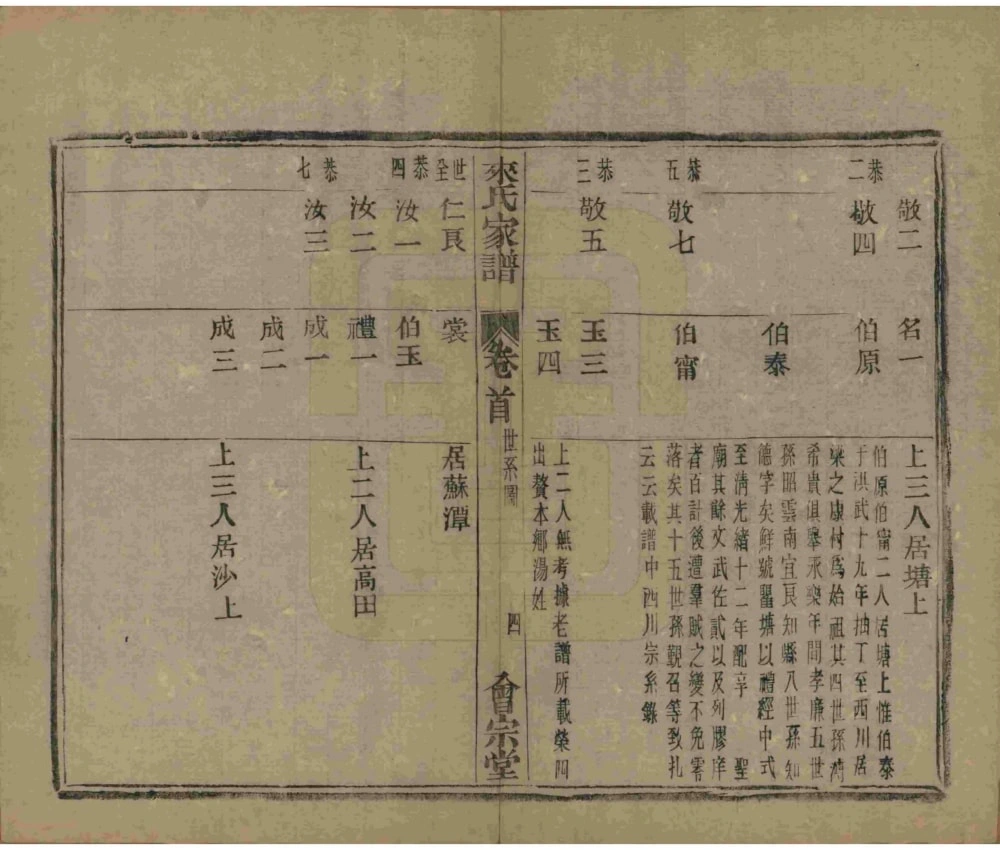 敬二
恭二
敬四
恭五
敬七
恭三
敬五
名一
伯原
伯泰
伯甯
玉三
玉四
上三人居塘上
伯原伯甯二人居塘上惟伯泰
于洪武十九年抽丁至西川居
梁之康村爲始祖其四世孫濟
希貴俱舉永樂年間孝廉五世
孫昭雲南宜良知縣八世孫知
德字矣鮮號瞿塘以禮經中式
至清光緒十二年配享 聖
廟其餘文武佐貳以及列膠庠
者百計後遭羣賊之變不免零
落矣其十五世孫覲召等致扎
云云載譜中四川宗系錄
上二人無考據老譜所載榮四
出贅本鄉湯姓
來氏家譜
卷首
世系圖
四
會宗堂
世全
仁良
恭四
汝一
汝二
恭七
汝三
裳
伯玉
禮一
成一
成二
成三
居蘇潭
上二人居高田
上三人居沙上